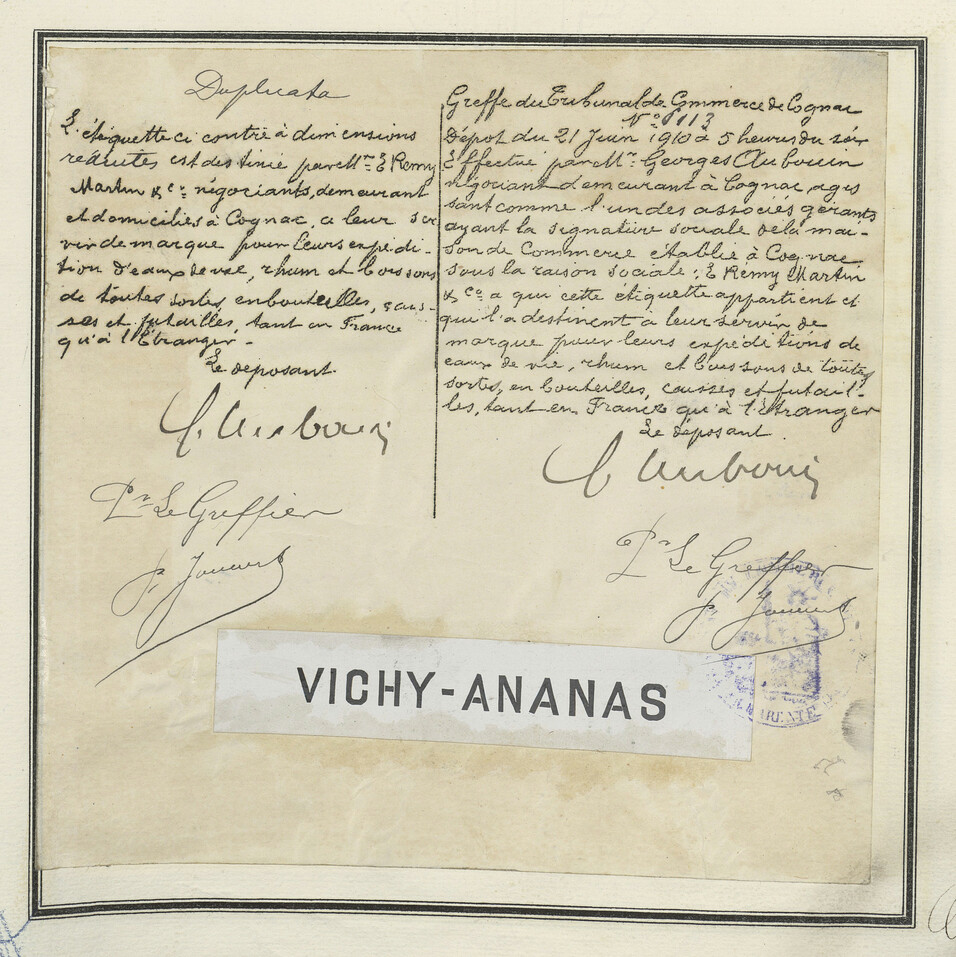 Duplicata
L'étiquette ci contre à dimensions
réduites est destinée par Mrs E Remy
Martin & Co négociants, demeurant
et domiciliés à Cognac, a leur ser
vir de marque pour leurs expédi-
tion d'eaux de vie, rhum et boissons
de toutes sortes, en bouteilles, caus-
ses et futailles, tant en France
qu'à l'Etranger -
Le déposant
G. Aubouin
Pr Le Greffier
Greffe du Tribunal de Commerce de Cognac
Nº 6113
Dépot du 21 Juin 1910 à 5 heures du soir
Effectué par Mr Georges Aubouin
négociant demeurant à Cognac, agis
sant comme l'un des associés gérants
ayant la signature sociale de la mai-
son de Commerce établie à Cognac
sous la raison sociale; E Remy Martin
& Co a qui cette étiquette appartient et
qui l'a destinent a leur servir de
marque pour leurs expéditions de
eaux de vie, rhum et boissons de toutes
sortes, en bouteilles, causses et futail-
les, tant en France qu'à l'étranger
Le déposant.
G Aubouin
Pr Le Greffier
VICHY-ANANAS